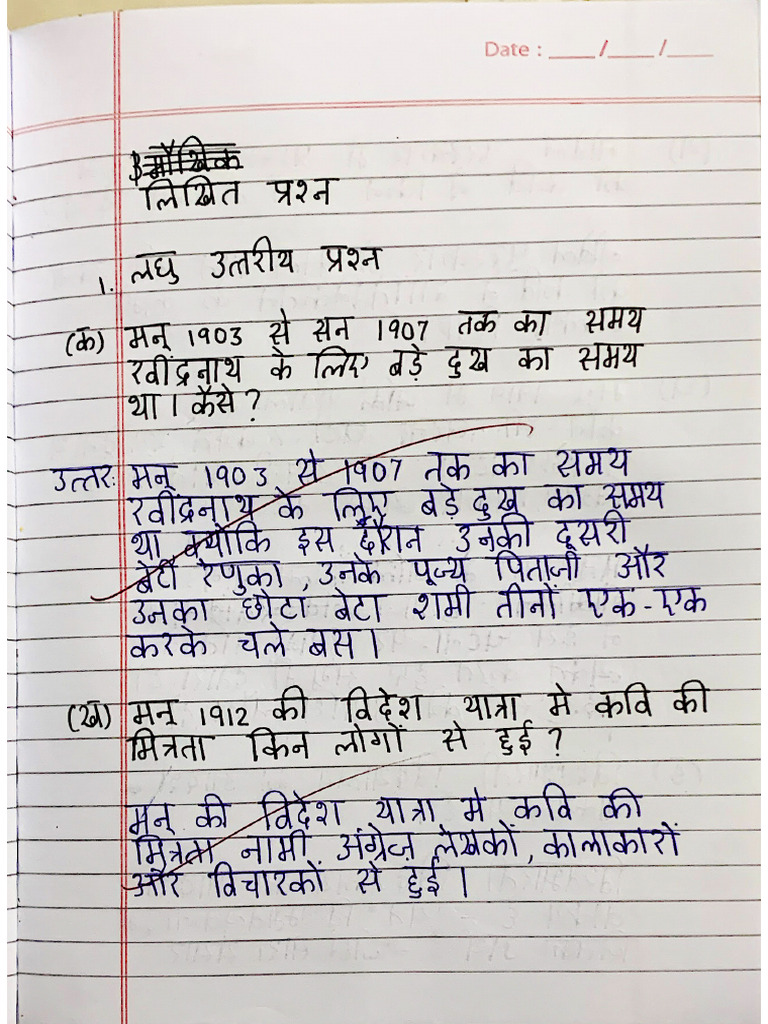 Date : ___/___/___
मौखिक
लिखित प्रश्न
1. लघु उत्तरीय प्रश्न
(क) मन् 1903 से सन 1907 तक का समय
रवींद्रनाथ के लिए बड़े दुख का समय
था । कैसे ?
उत्तर: मन् 1903 से 1907 तक का समय
रवींद्रनाथ के लिए बड़े दुख का समय
था क्योकि इस दौरान उनकी दूसरी
बेटी रेणुका , उनके पूज्य पिताजी और
उनका छोटा बेटा शमी तीनों एक-एक
करके चले बस ।
(ख) मन् 1912 की विदेश यात्रा मे कवि की
मित्रता किन लोगों से हुई ?
मन् की विदेश यात्रा मे कवि की
मित्रता नामी अंग्रेज़ लेखकों , कालाकारों
और विचारकों से हुई ।